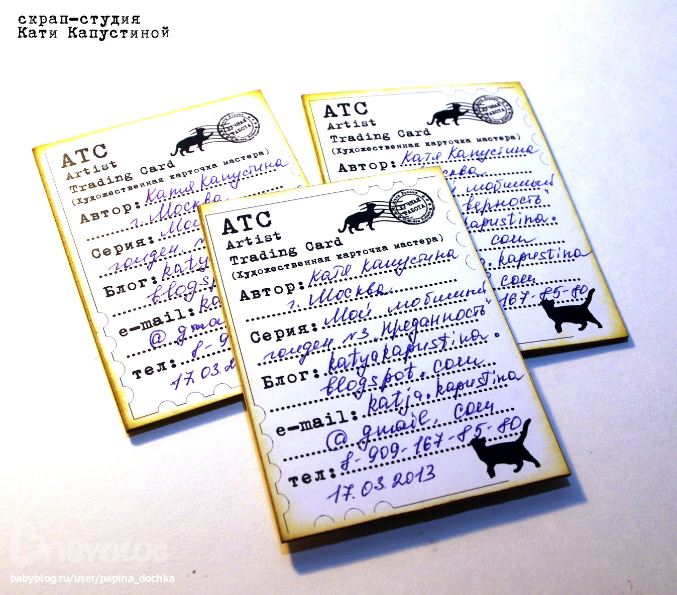 скрап-студия
Кати Капустиной
АТС
Artist
Trading Card
(Художественная карточка мастера)
Автор: Катя Капустина
г. Москва
Серия: Мо
голден №
Блог: katy
blogsp
e-mail: ka
@ gma
тел: 8-9
17.03.2
АТС
Artist
Trading Card
(Художественная карточка мастера)
Автор: Катя Капустина
осква
й любимый
верность"
apustina.
com
a.kapustina
com
167-85-80
АТС
Artist
Trading Card
(Художественная карточка мастера)
РУЧНАЯ
РАБОТА
Автор: Катя Капустина
г. Москва
Серия: Мой любимый
голден №3 "Преданность"
Блог: katyakapustina.
blogspot.com
e-mail: katja.kapustina
@ gmail. com
тел: 8-909-167-85-80
17.03.2013
BABYBLOG
babyblog.ru/user/papina_dochka